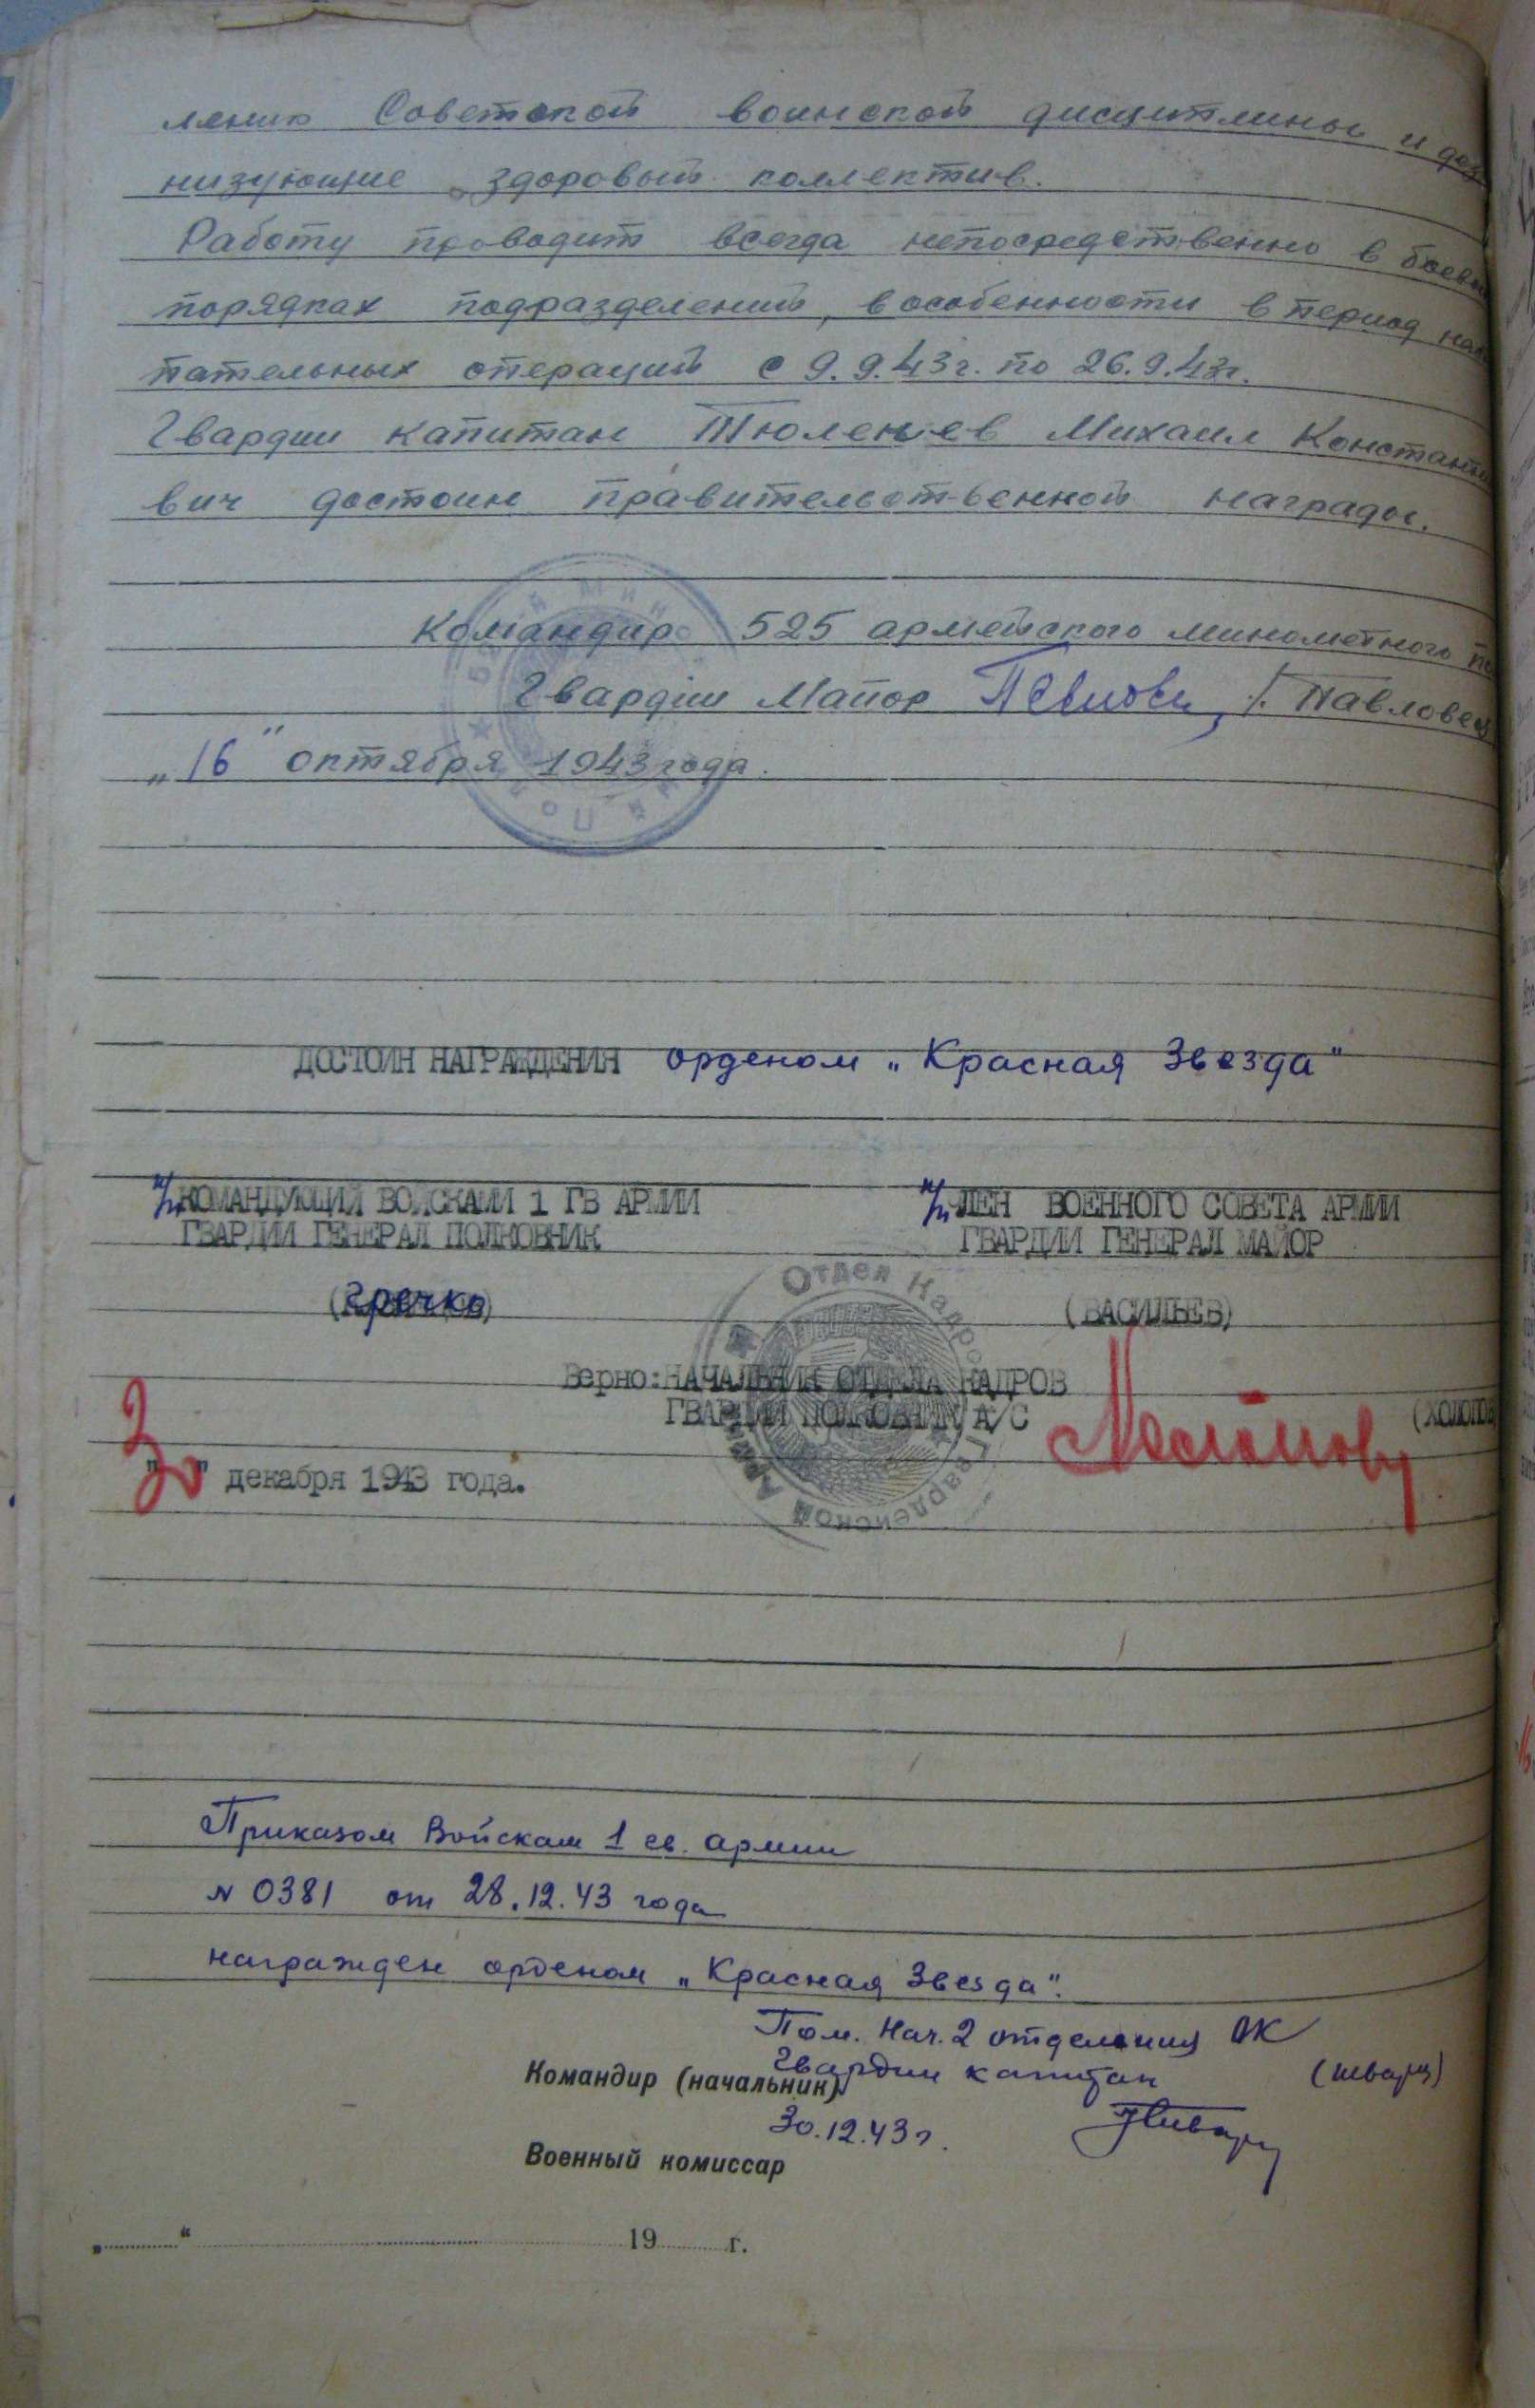 ления Советской воинской дисциплины и
низующие здоровый коллектив.
Работу проводит всегда непосредственно в боевы
порядках подразделений, в особенности в период нас
пательных операций с 9.9.43г. по 26.9.43г.
Гвардии капитан Тюленев Михаил Константи
вич достоин правительственной награды.
Командир 525 армейского минометного по
Гвардии Майор /. Павловец
„16" октября 1943 года.
ДОСТОИН НАГРАЖДЕНИЯ орденом „Красная Звезда"
п/п КОМАНДУЮЩИЙ ВОЙСКАМИ 1 ГВ АРМИИ
ГВАРДИИ ГЕНЕРАЛ ПОЛКОВНИК
(Гречко)
п/п ЧЛЕН ВОЕННОГО СОВЕТА АРМИИ
ГВАРДИИ ГЕНЕРАЛ МАЙОР
(ВАСИЛЬЕВ)
Отдел Кадров Гвардейской Армии
Верно: НАЧАЛЬНИК ОТДЕЛА КАДРОВ
ГВАРДИИ ПОЛКОВНИК А/С
(ХОЛОПОВ
"30" декабря 1943 года.
Приказом Войскам 1 гв. армии
N 0381 от 28.12.43 года
награжден орденом „Красная Звезда".
Пом. Нач. 2 отделения ОК
Гвардии капитан (Шварц)
Командир (начальник)
30.12.43 г.
Военный комиссар
„ “ 19 г.